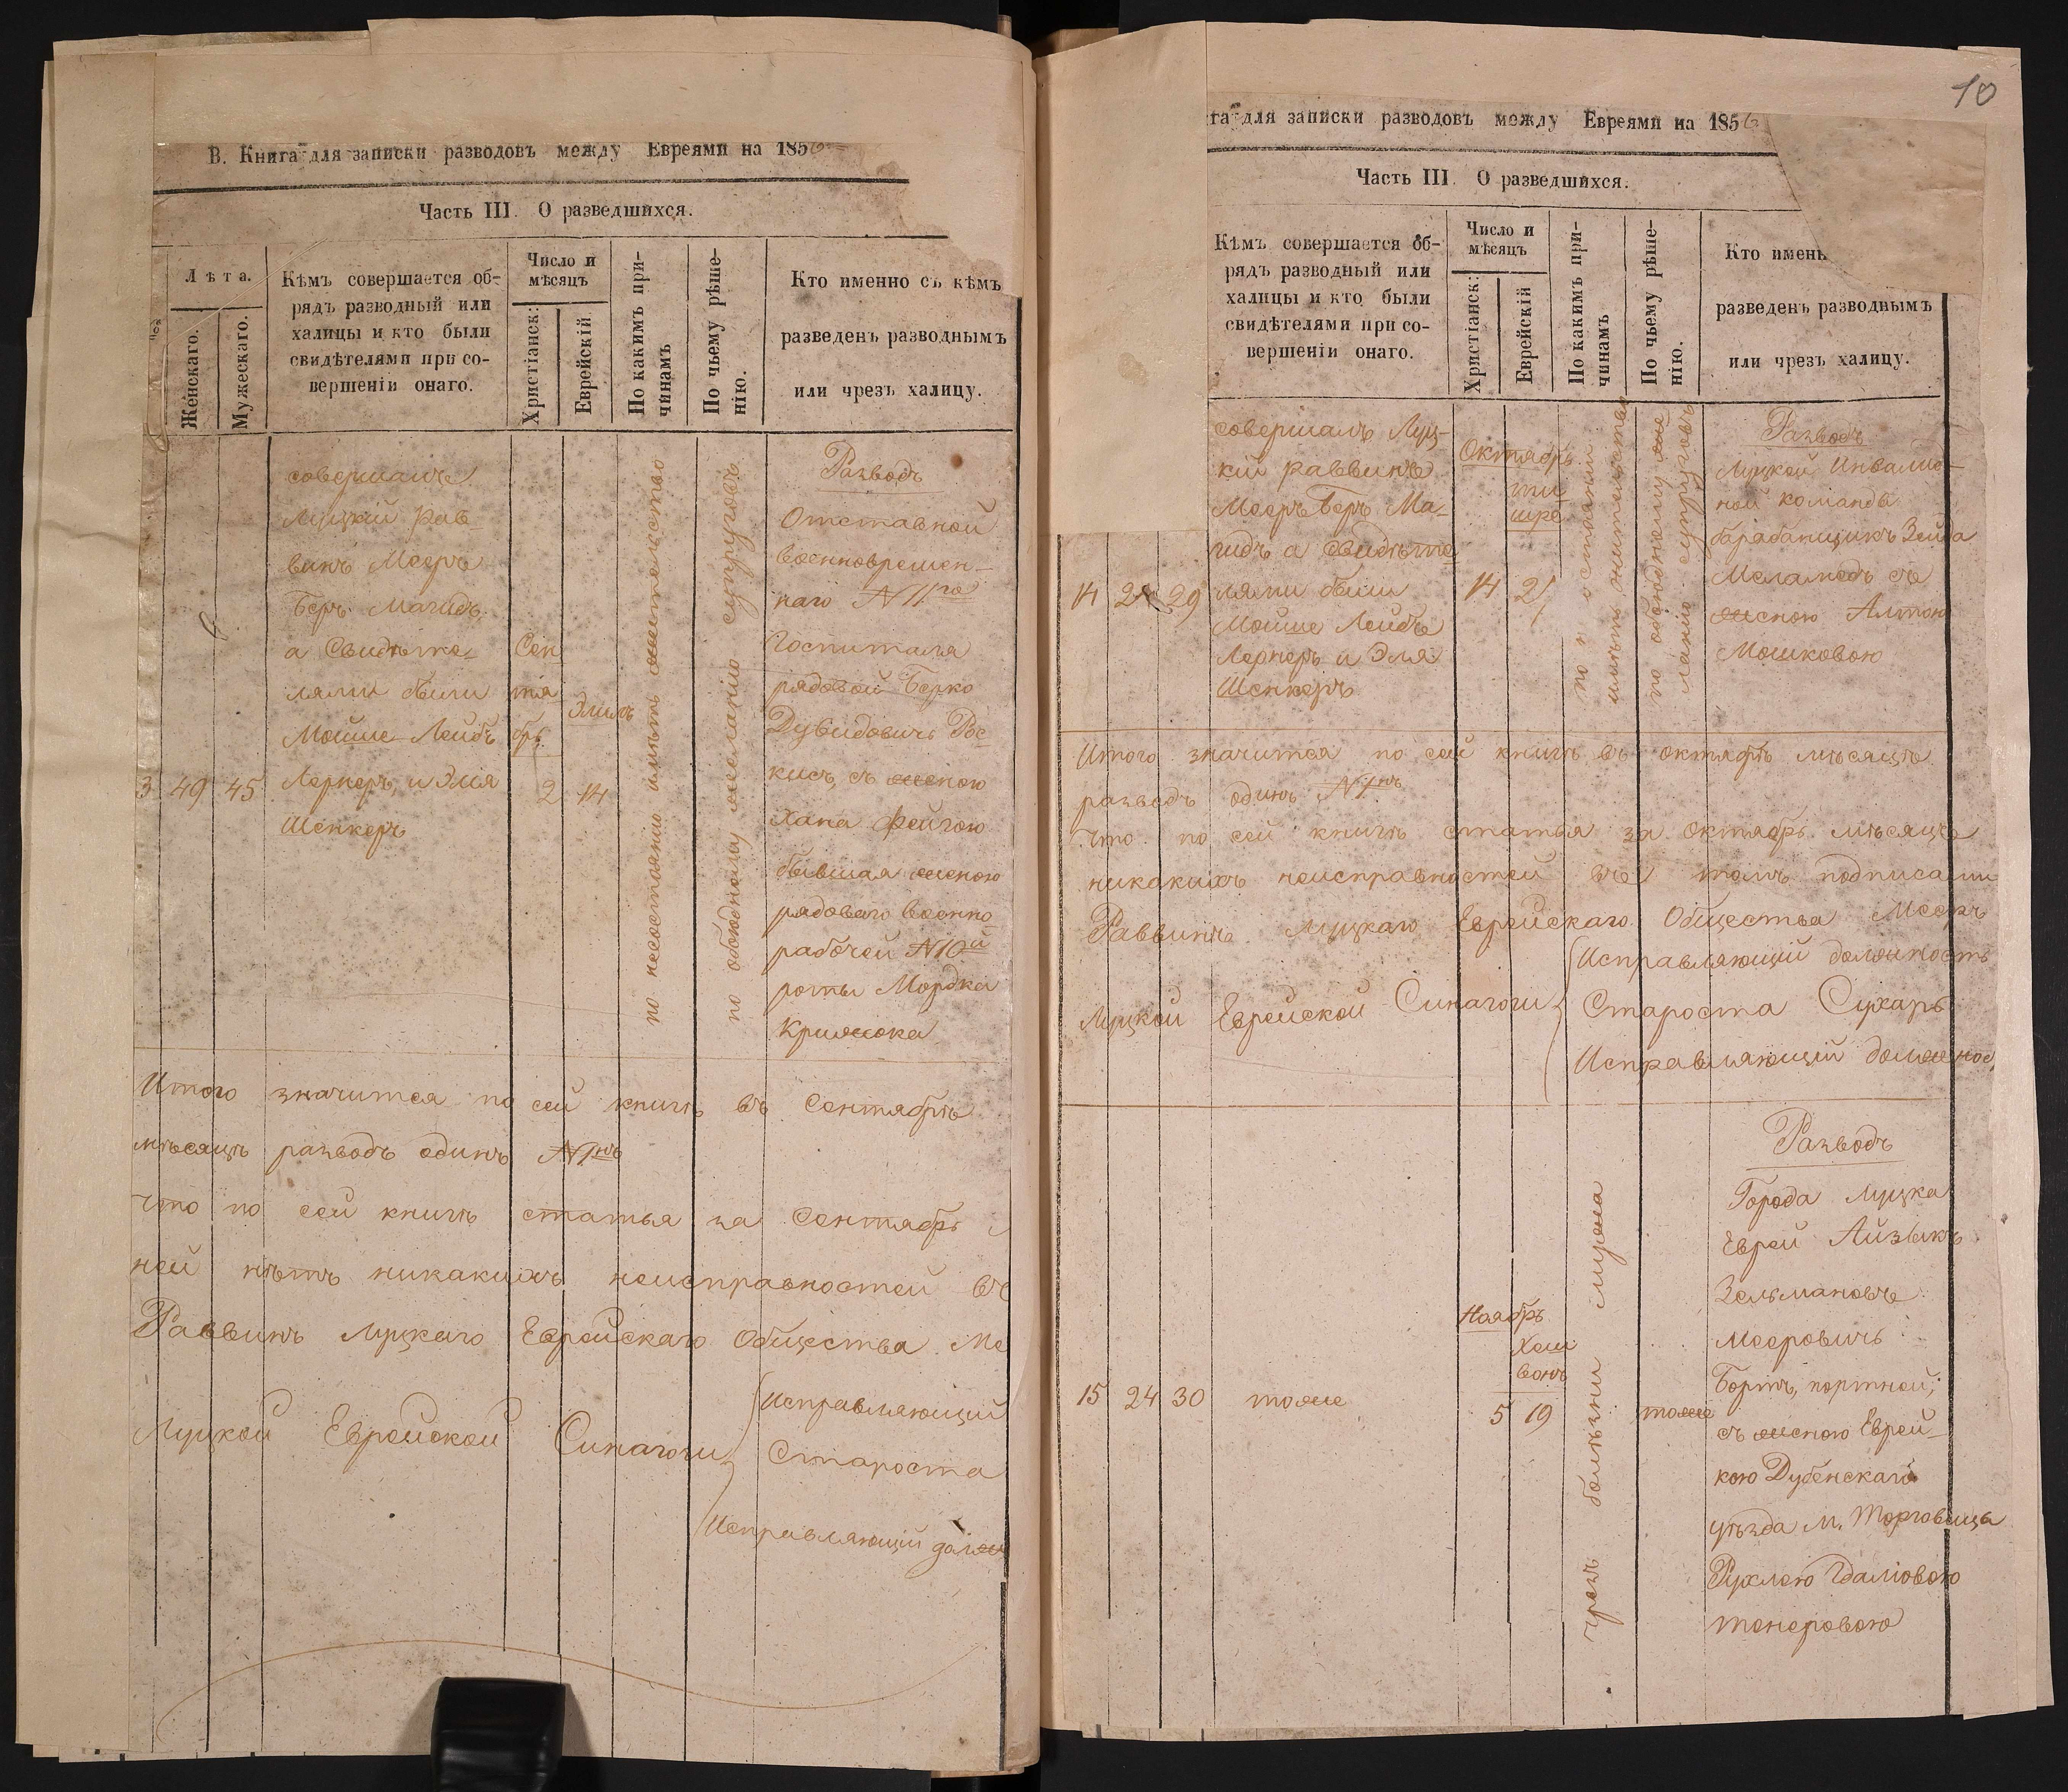 В. Книга для записки разводовъ между Евреями на 1856
Часть III. О разведшихся.
Лѣта.
Женскаго.
Мужескаго.
Кѣмъ совершается об-
рядъ разводный или
халицы и кто были
свидѣтелями при со-
вершеніи онаго.
Число и
мѣсяцъ
Христіанск:
Еврейскій
По какимъ при-
чинамъ
По чьему рѣше-
нію.
Кто именно съ кѣмъ
разведенъ разводнымъ
или чрезъ халицу.
3 49 45
совершалъ
Луцкій рав
винъ Мееръ
Беръ Магидъ
а Свидѣте-
лями были
Мойше Лейбъ
Лернеръ, и Эля
Шенкеръ
Сен
тя
брь
2
Элилъ
14
по несостоянію имѣть жительство
по обоюдному желанію супруговъ
Разводъ
Отставной
военновремен-
наго №11го
Госпиталя
рядовой Берко
Дувидовичъ Рос-
кисъ, съ женою
Хана Фейгою
бывшая женою
рядоваго военно
рабочей №10й
роты Мордка
Крижока
Итого значится по сей книгѣ въ Сентябрѣ
мѣсяцѣ разводъ одинъ №1нъ
что по сей книгѣ статья за Сентябрь
ней нѣтъ никакихъ неисправностей въ
Раввинъ Луцкаго Еврейскаго Общества Ме
Луцкой Еврейской Синагоги
Исправляющій
Староста
Исправляющій долж
10
га для записки разводовъ между Евреями на 1856
Часть III. О разведшихся.
Кѣмъ совершается об-
рядъ разводный или
халицы и кто были
свидѣтелями при со-
вершеніи онаго.
Число и
мѣсяцъ
Христіанск:
Еврейскій
По какимъ при-
чинамъ
По чьему рѣше-
нію.
Кто имень
разведенъ разводнымъ
или чрезъ халицу.
14 29
совершалъ Луц-
кій раввинъ
Мееръ Беръ Ма-
гидъ а Свидѣте
лями были
Мойше Лейбъ
Лернеръ и Эля
Шенкеръ
Октябрь
14
ти
шре
имѣть жительства
по обоюдному же
ланію супруговъ
Разводъ
Луцкой Инвалид-
ной команды
барабанщикъ Зейда
Меламедъ съ
женою Алтою
Мошковою
Итого значится по сей книгѣ въ октябрѣ мѣсяцѣ
разводъ одинъ №1нъ
Что по сей книгѣ статья за Октябрь мѣсяцъ
никакихъ неисправностей въ томъ подписали
Раввинъ Луцкаго Еврейскаго Общества Мееръ
Луцкой Еврейской Синагоги
Исправляющій должность
Староста Сухарь
Исправляющій должнос
15 24 30
тоже
Ноябрь
5
Хеш
вонъ
19
чрезъ болѣзни мужа
тоже
Разводъ
Города Луцка
Еврей Айзыкъ
Зельмановъ
Мееровичъ
Бортъ, портной,
съ женою Еврей-
кою Дубенскаго
уѣзда м. Торговица
Рухлею Гдаліовою
тенеровою